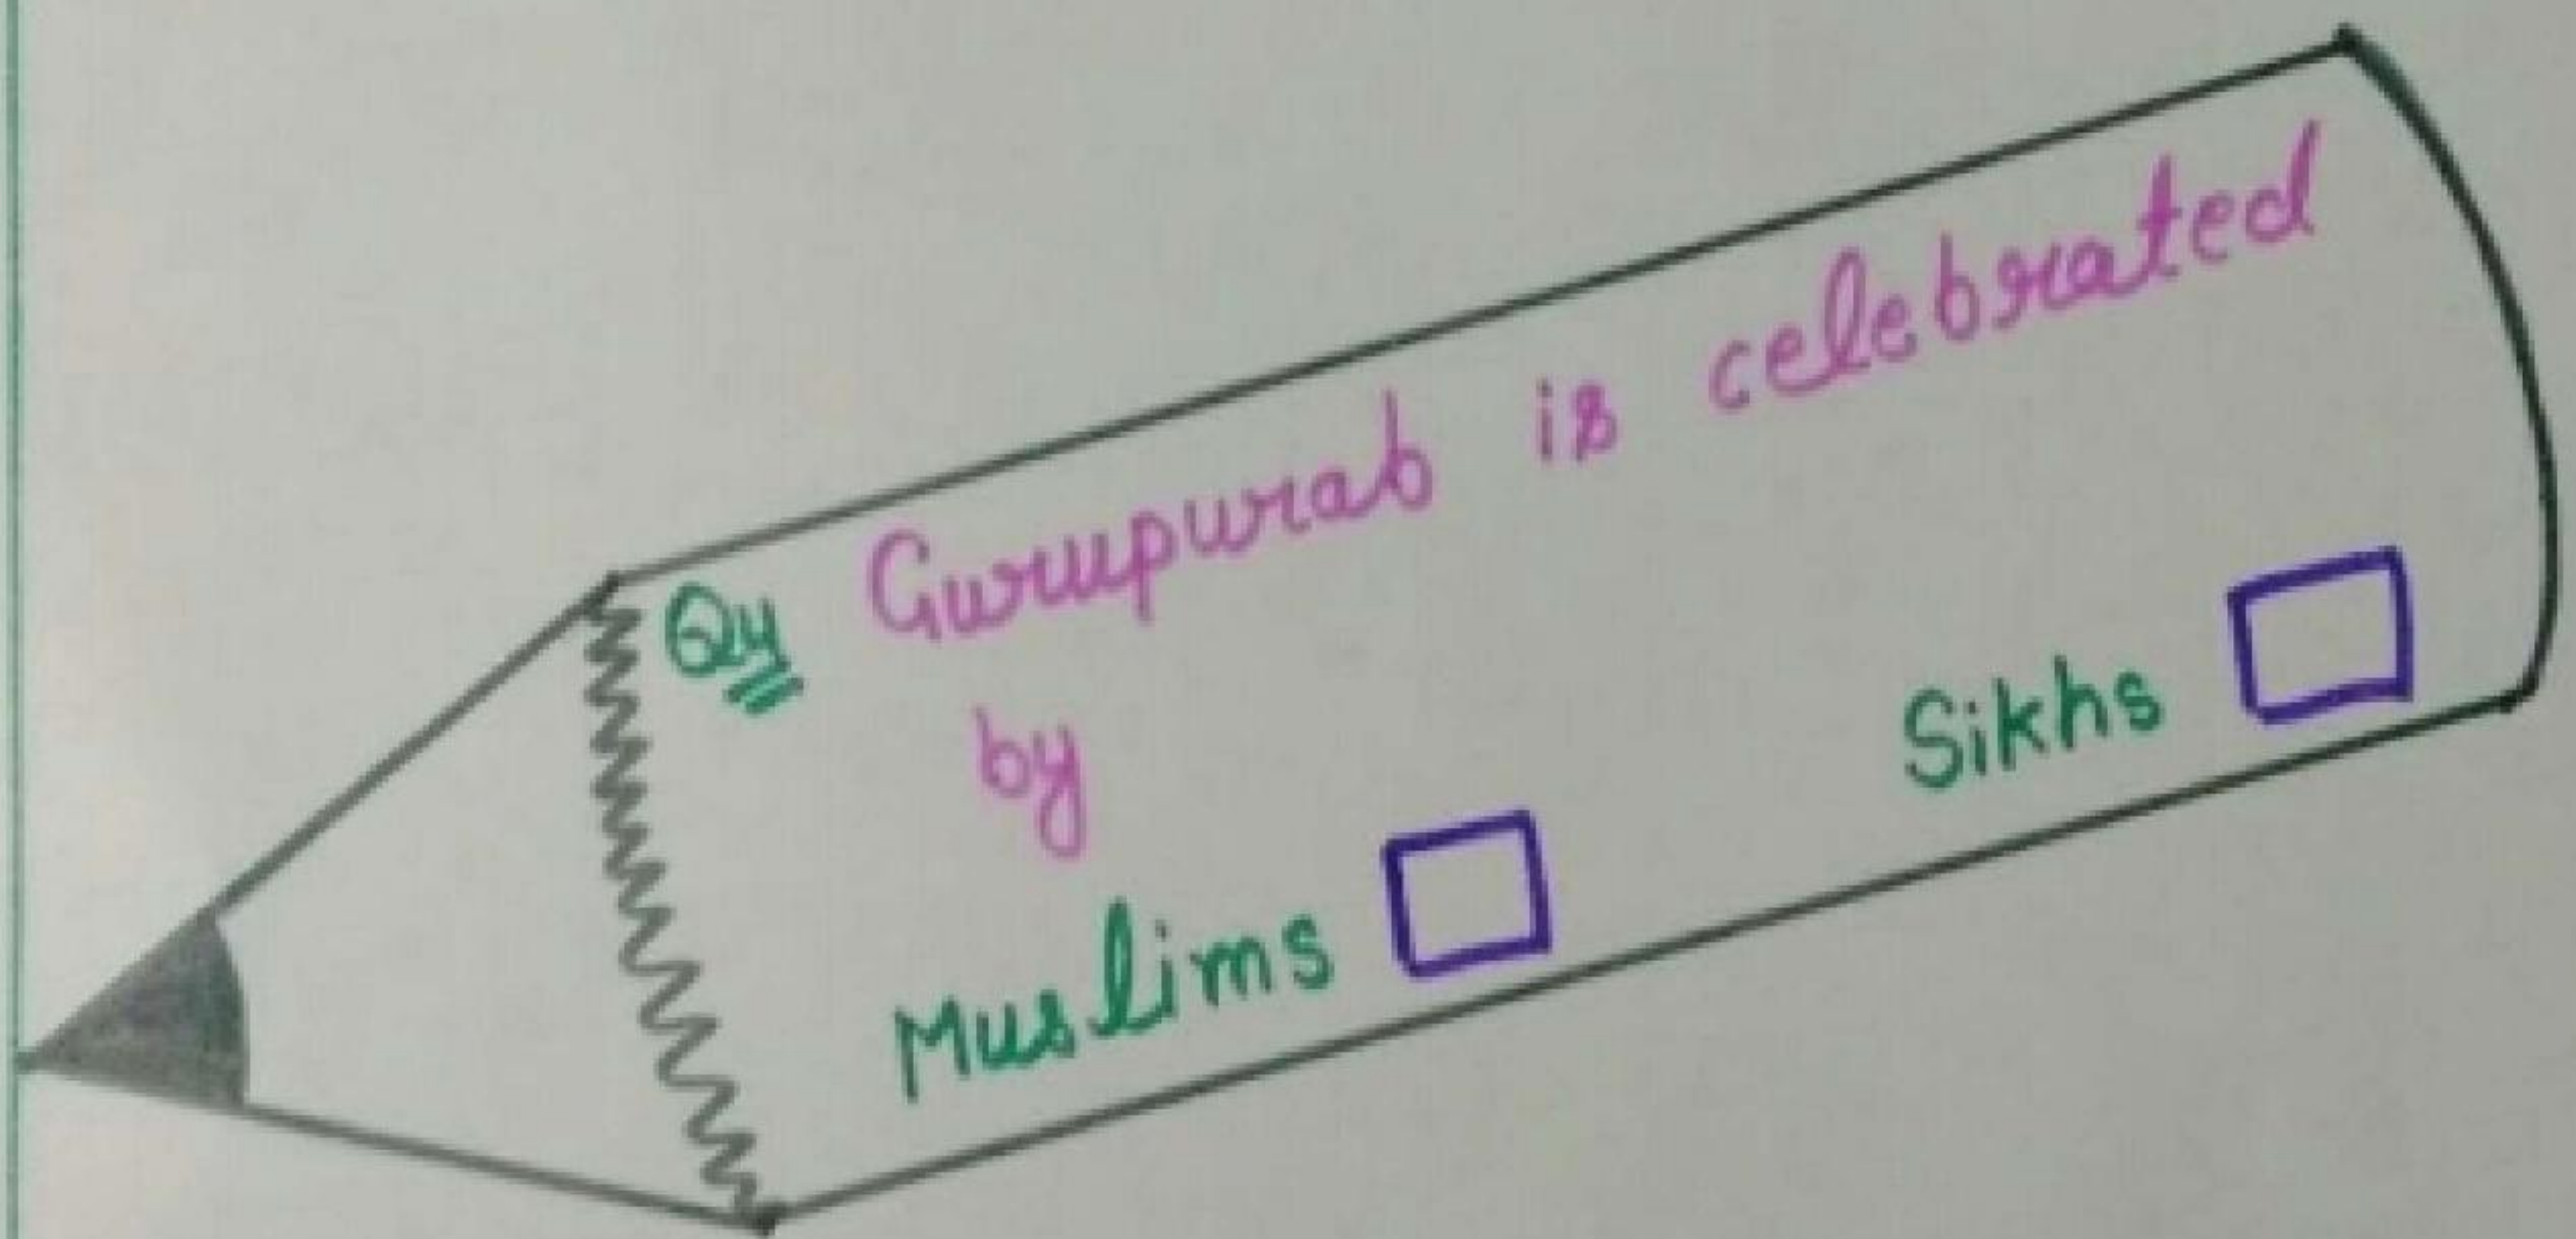 Q4 Gurupurab is celebrated
by
Muslims Sikhs